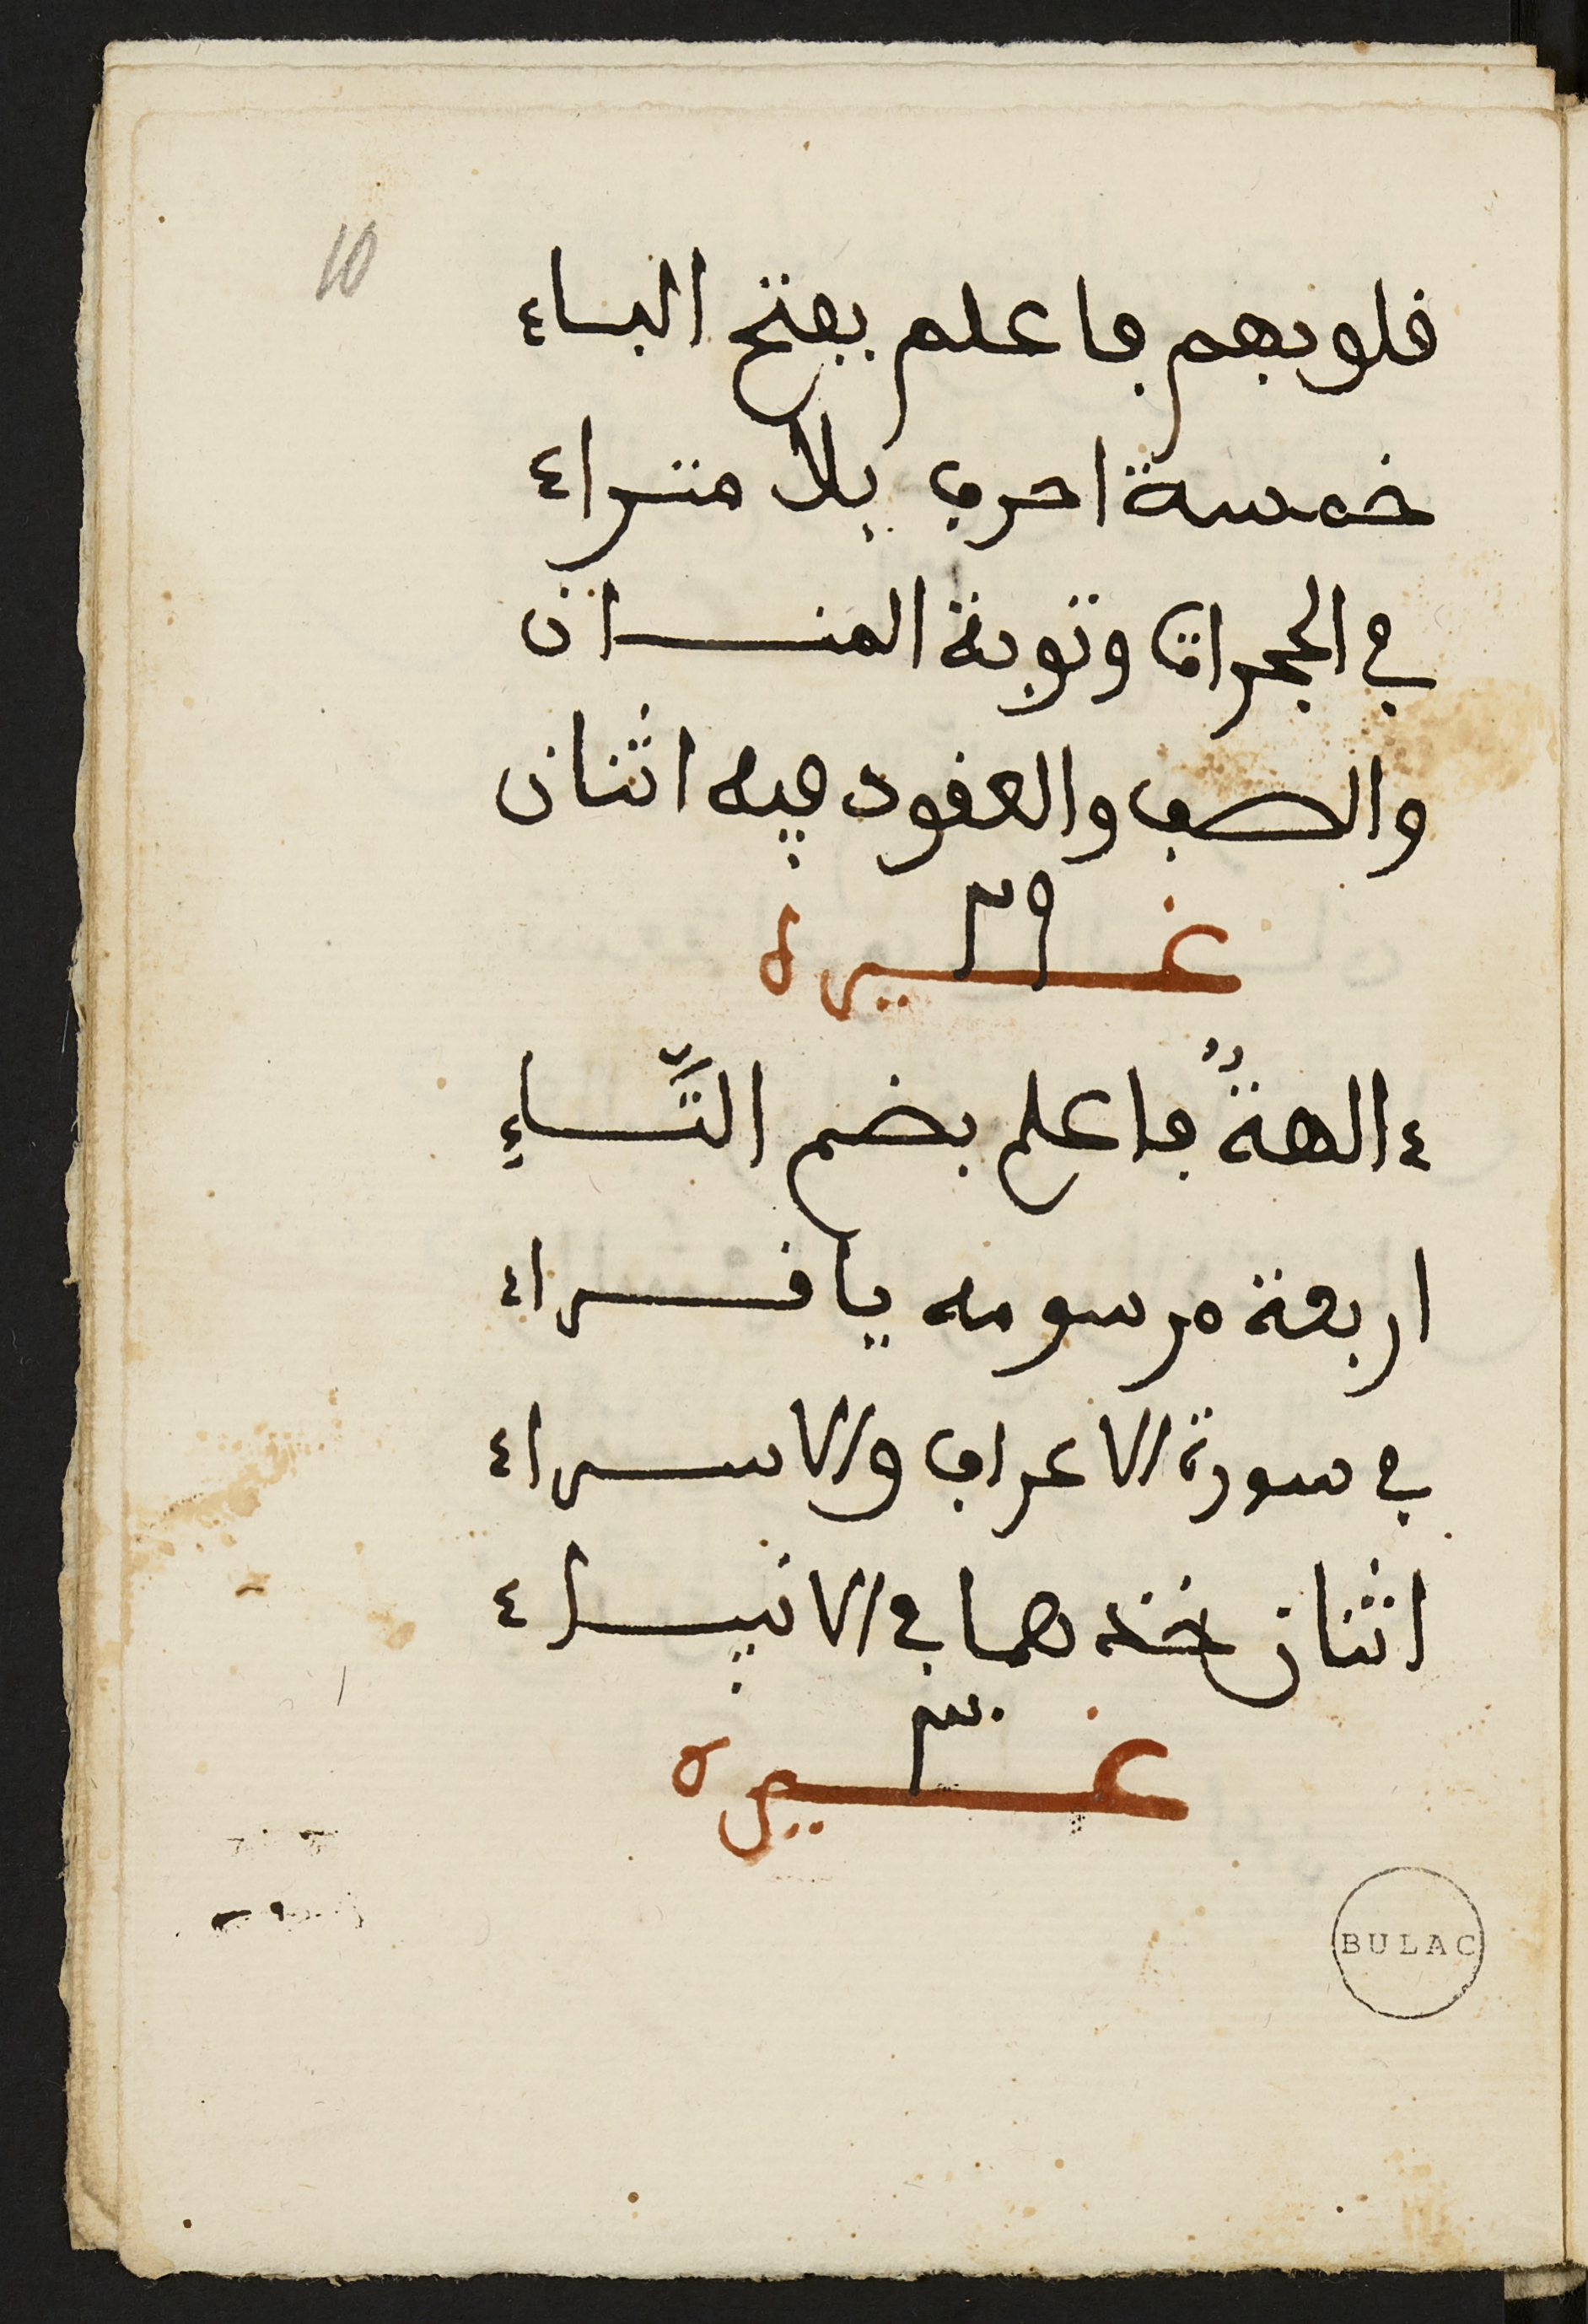 10
قلوبهم فاعلم بفتح الباء
خمسة احرف بلا متراء
في الحجرات وتوبة المنان
والصف والعقود فيه اثنان
٢٩
غيره
ءالهةٌ فاعلم بضم التَّاءِ
اربعة مرسومه يا قراء
في سورة الاعراف والاسراء
اثنان خذهما في الانبياء
٣٠
غيره
BULAC